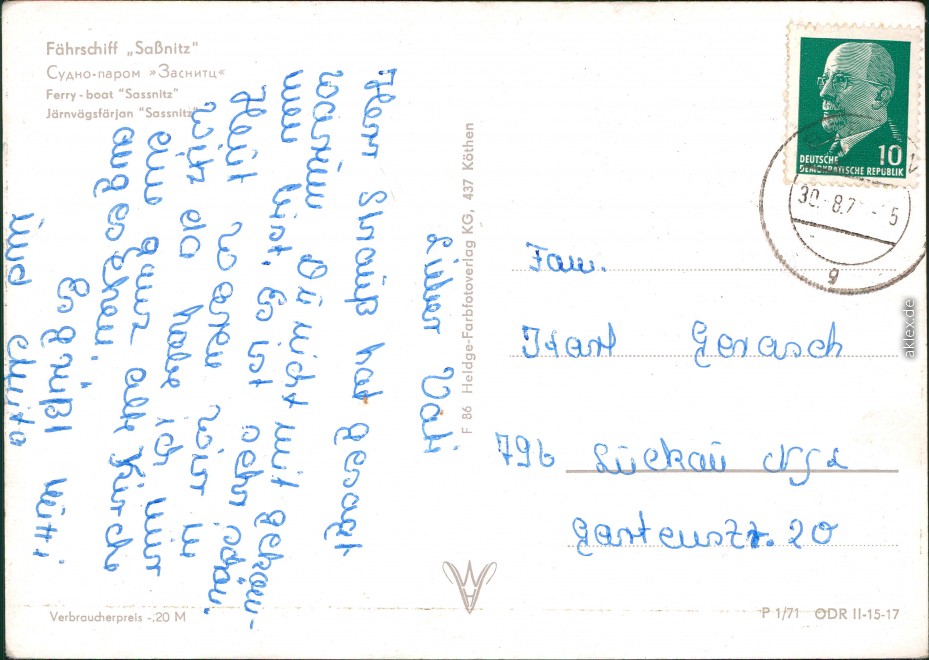 Fährschiff „Saßnitz"
Судно-паром »Засниtц«
Ferry-boat "Sassnitz"
Järnvägsfärjan "Sassnitz"
Lieber Vati
Herr Strauß hat gesagt
warum Dü nicht mit gekom-
men bist. Es ist sehr schön.
Heüt waren wir in
witz da habe ich mir
eine ganz alte Kirche
angesehen.
Es grüßt
und
F 86 Heldge-Farbfotoverlag KG, 437 Köthen
DEUTSCHE
DEMOKRATISCHE REPUBLIK
10
30.-8.7 - 5
g
Fam.
Karl Gerasch
796 Lückaü
Gartenstr. 20
Verbraucherpreis -.20 M
P 1/71 ODR II-15-17
aklex.de